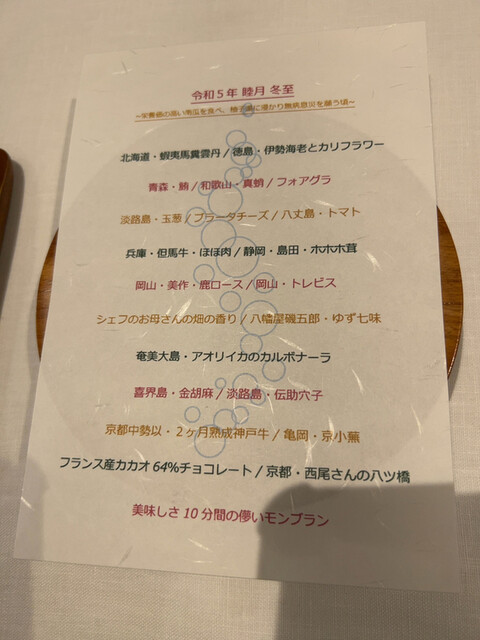 令和５年 睦月 冬至
~栄養価の高い南瓜を食べ、柚子湯に浸かり無病息災を願う頃~
北海道・蝦夷馬糞雲丹 / 徳島・伊勢海老とカリフラワー
青森・鮪 / 和歌山・真蛸 / フォアグラ
淡路島・玉葱 / ブラータチーズ / 八丈島・トマト
兵庫・但馬牛・ほほ肉 / 静岡・島田・ホホホ茸
岡山・美作・鹿ロース / 岡山・トレビス
シェフのお母さんの畑の香り / 八幡屋礒五郎・ゆず七味
奄美大島・アオリイカのカルボナーラ
喜界島・金胡麻 / 淡路島・伝助穴子
京都中勢以・２ヶ月熟成神戸牛 / 亀岡・京小蕪
フランス産カカオ 64%チョコレート / 京都・西尾さんの八ツ橋
美味しさ 10 分間の儚いモンブラン